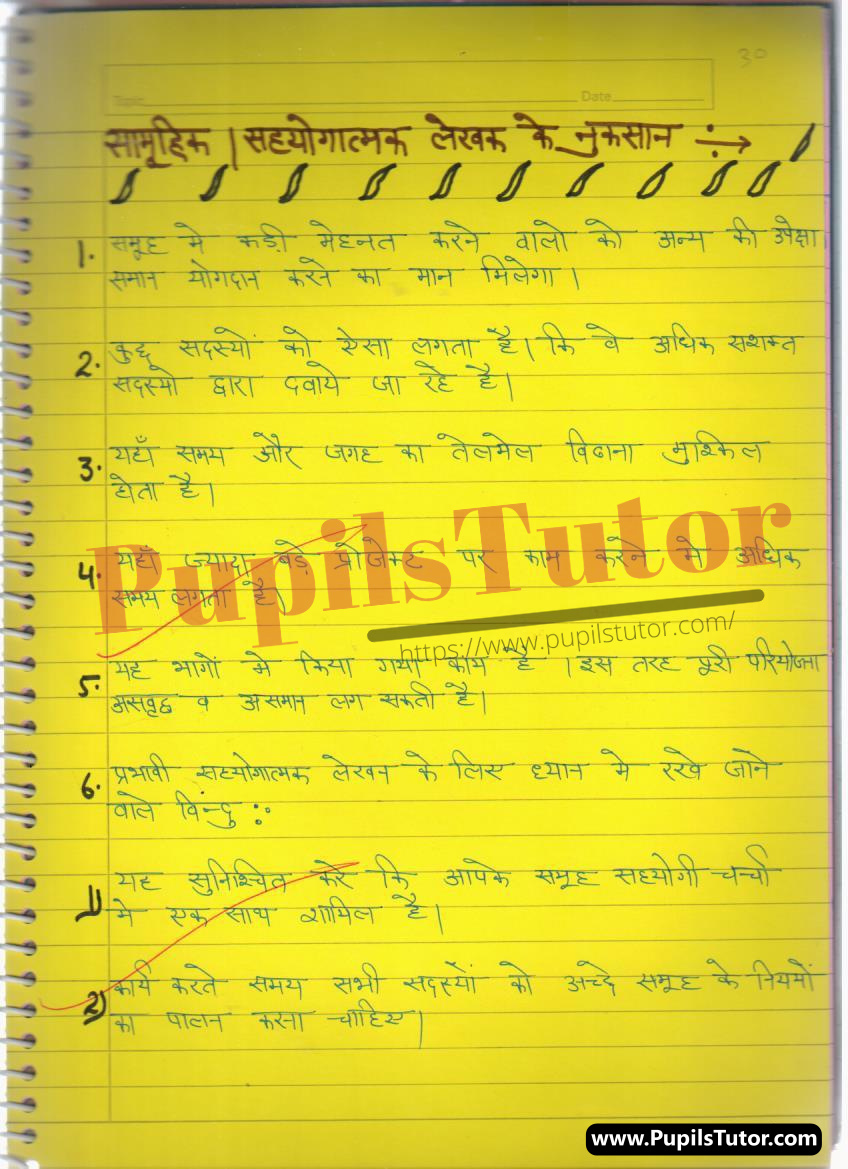 30
Topic Date
सामूहिक / सहयोगात्मक लेखक के नुकसान ÷→
1. समूह मे कड़ी मेहनत करने वालो को अन्य की उपेक्षा।
समान योगदान करने का मान मिलेगा।
2. कुछ सदस्यों को ऐसा लगता है। कि वे अधिक सशक्त
सदस्यो द्वारा दवाये जा रहे है।
3. यहाँ समय और जगह का तेलमेल बिठाना मुश्किल
होता है।
4. यहाँ ज्यादा बड़े प्रोजेक्ट पर काम करने मे अधिक
समय लगता है।
PupilsTutor
https://www.pupilstutor.com/
5. यह भागों मे किया गया कार्य है। इस तरह पूरी परियोजना
व असमान लग सकती है।
6. प्रभावी सहयोगात्मक लेखन के लिए ध्यान मे रखे जाने
वाले विन्दु :-
1) यह सुनिश्चित करे कि आपके समूह सहयोगी चर्चा
मे एक साथ शामिल है।
2) कार्य करते समय सभी सदस्यों को अच्छे समूह के नियमों
का पालन करना चाहिए।
www.PupilsTutor.com